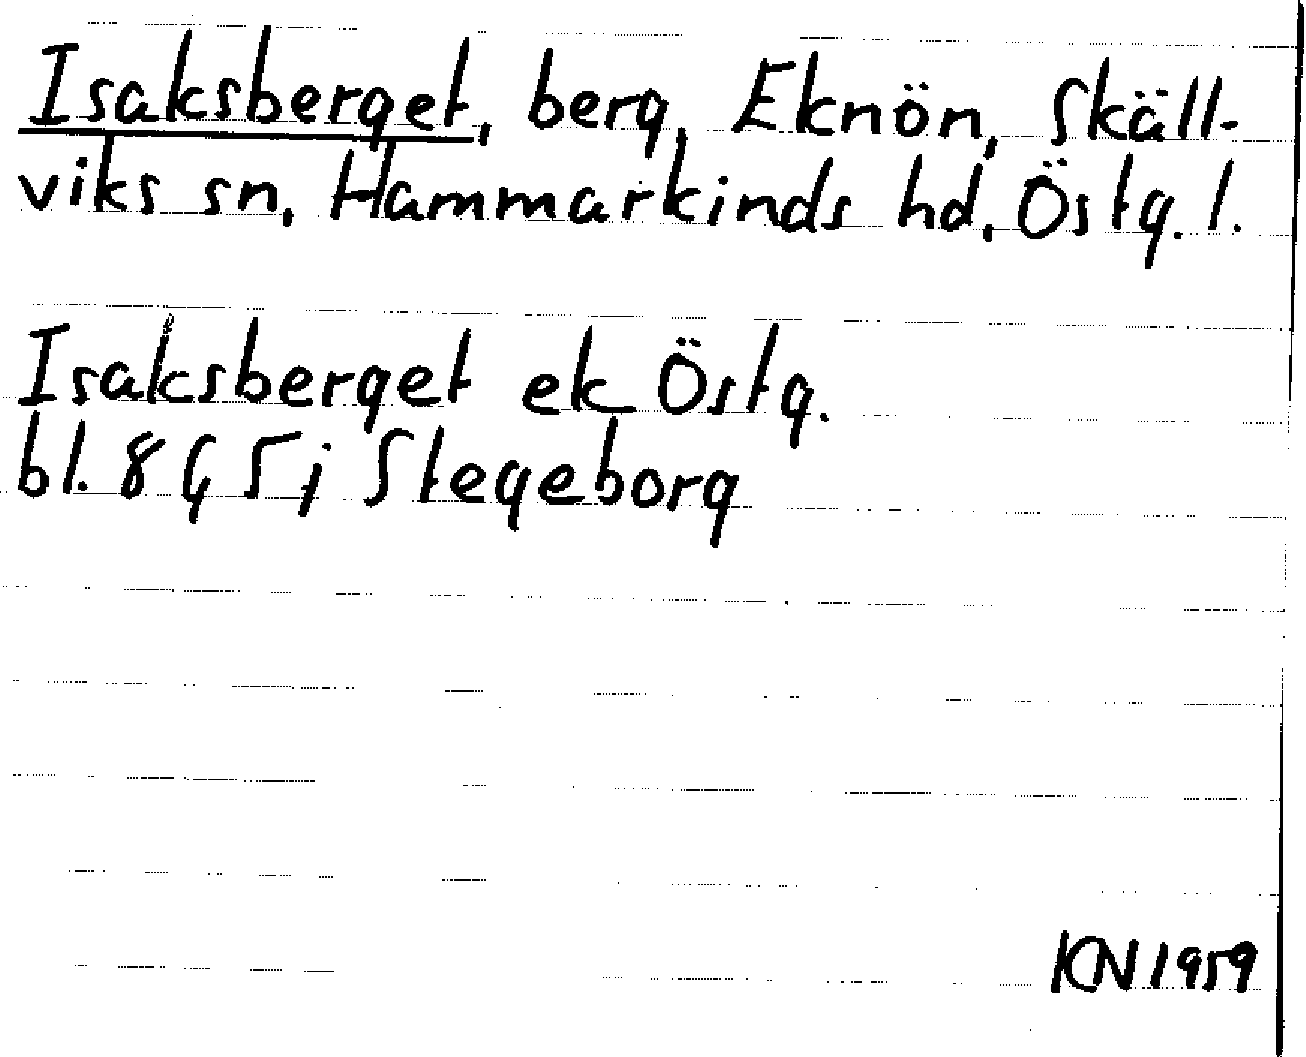 Isaksberget, berg, Eknön, Skäll-
viks sn, Hammarkinds hd, Östg. l.
Isaksberget ek Östg.
bl. 8 G 5 j Stegeborg
KN 1959